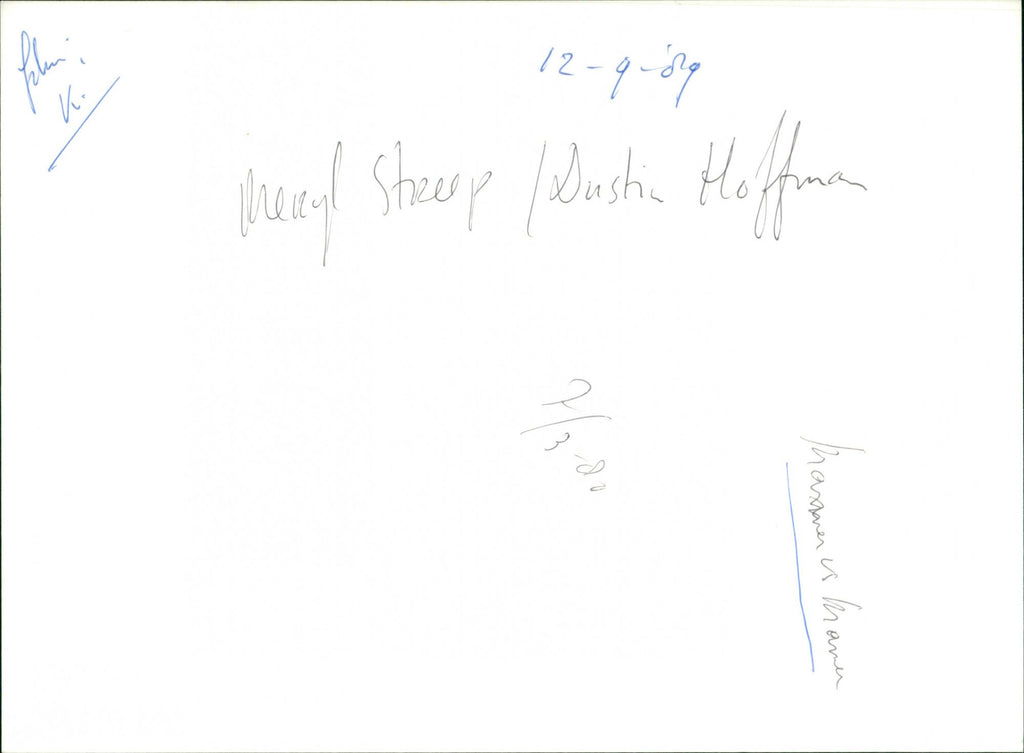 12-9-89
Meryl Streep / Dustin Hoffman
2/3-80
Kramer vs Kramer